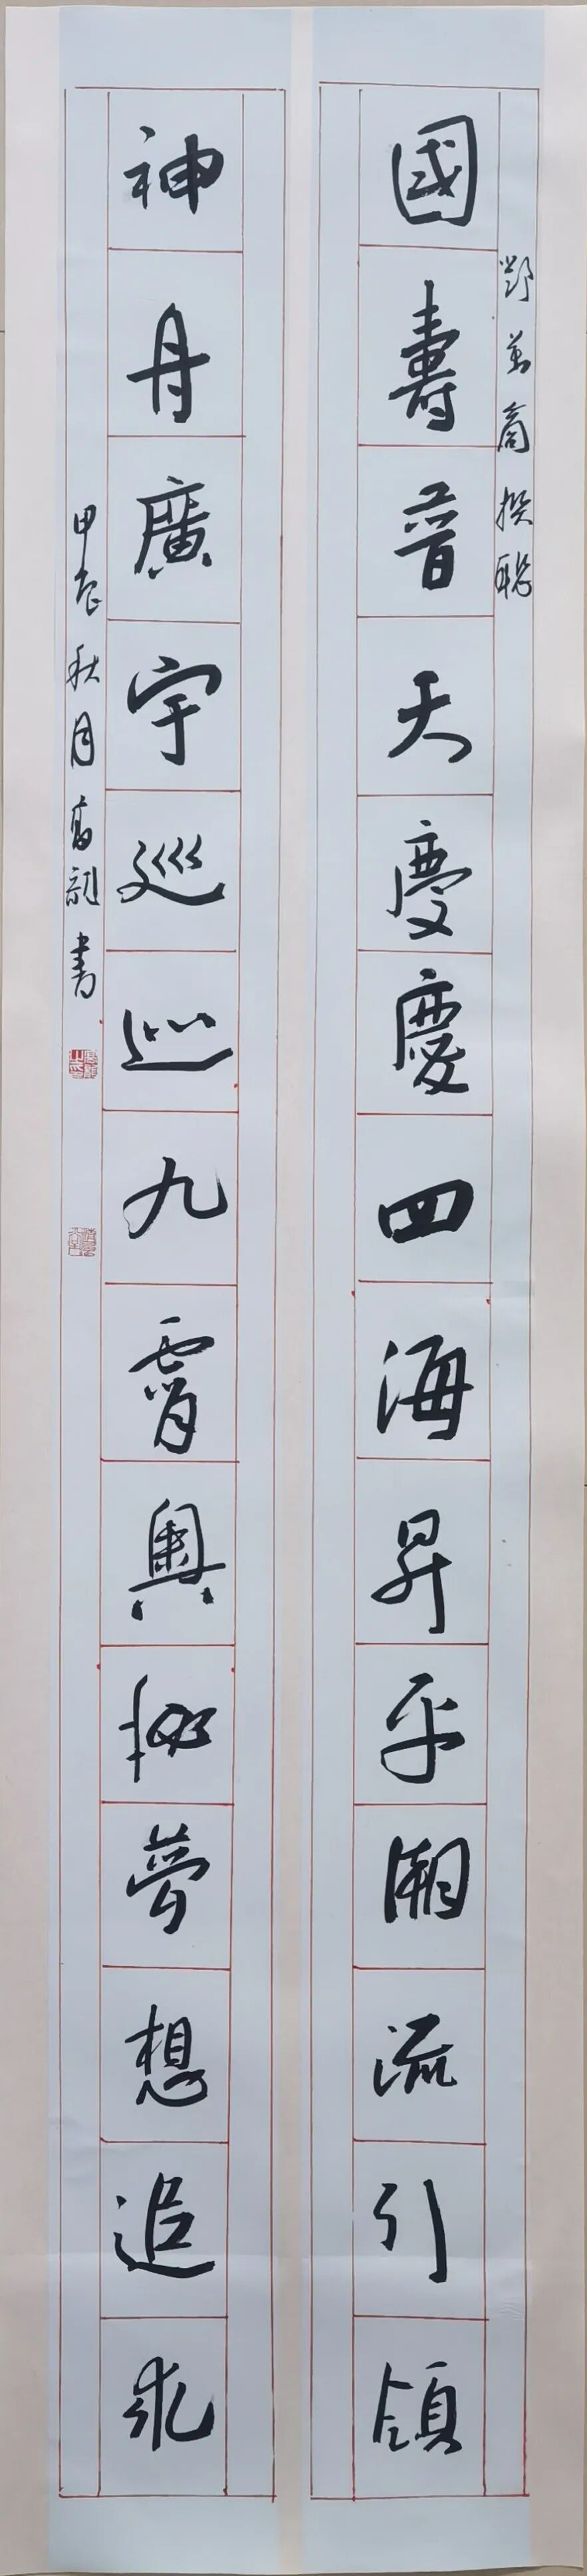 撰聯
國壽普天慶慶四海昇平潮流引領
神舟廣宇巡巡九霄奧秘夢想追求
甲辰秋月高書